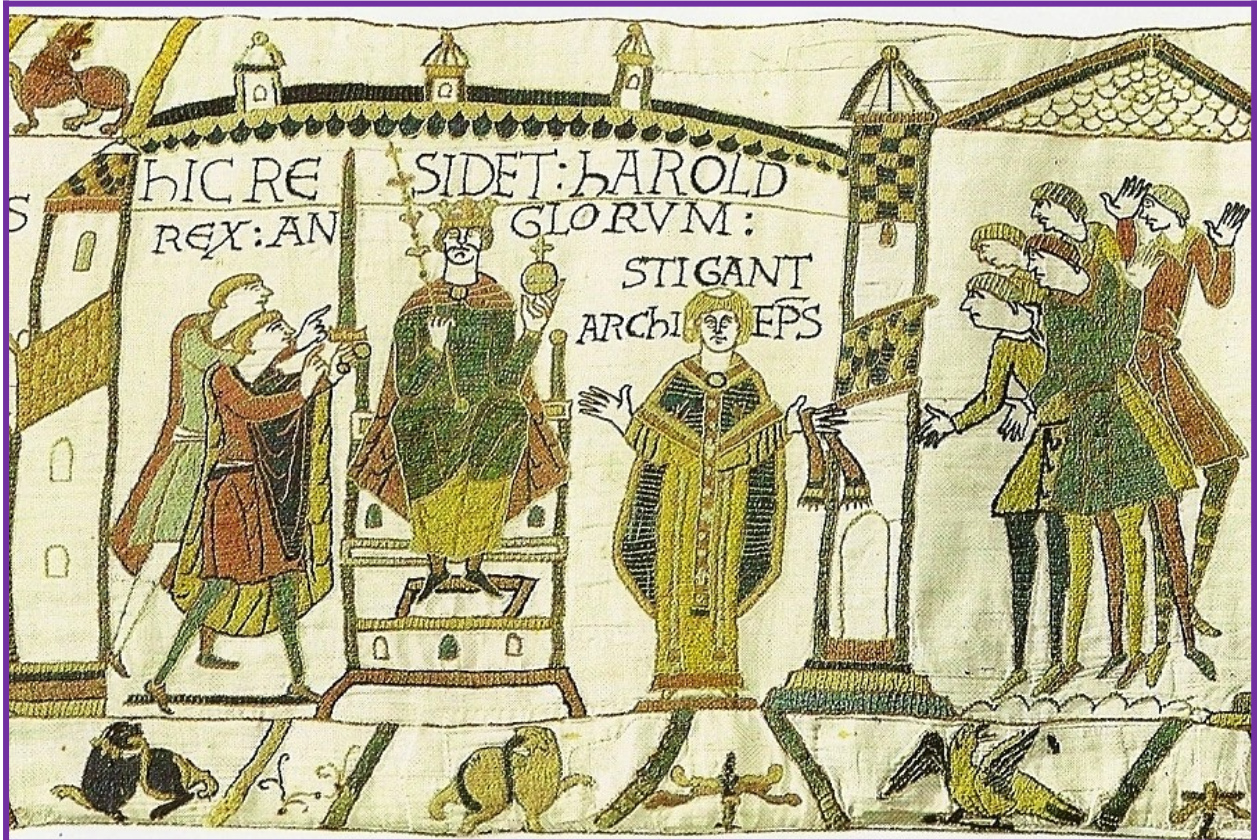 S
hIC RE SIDET : hAROLD
REX : AN GLORVM :
STIGANT
ARChI EP̅S